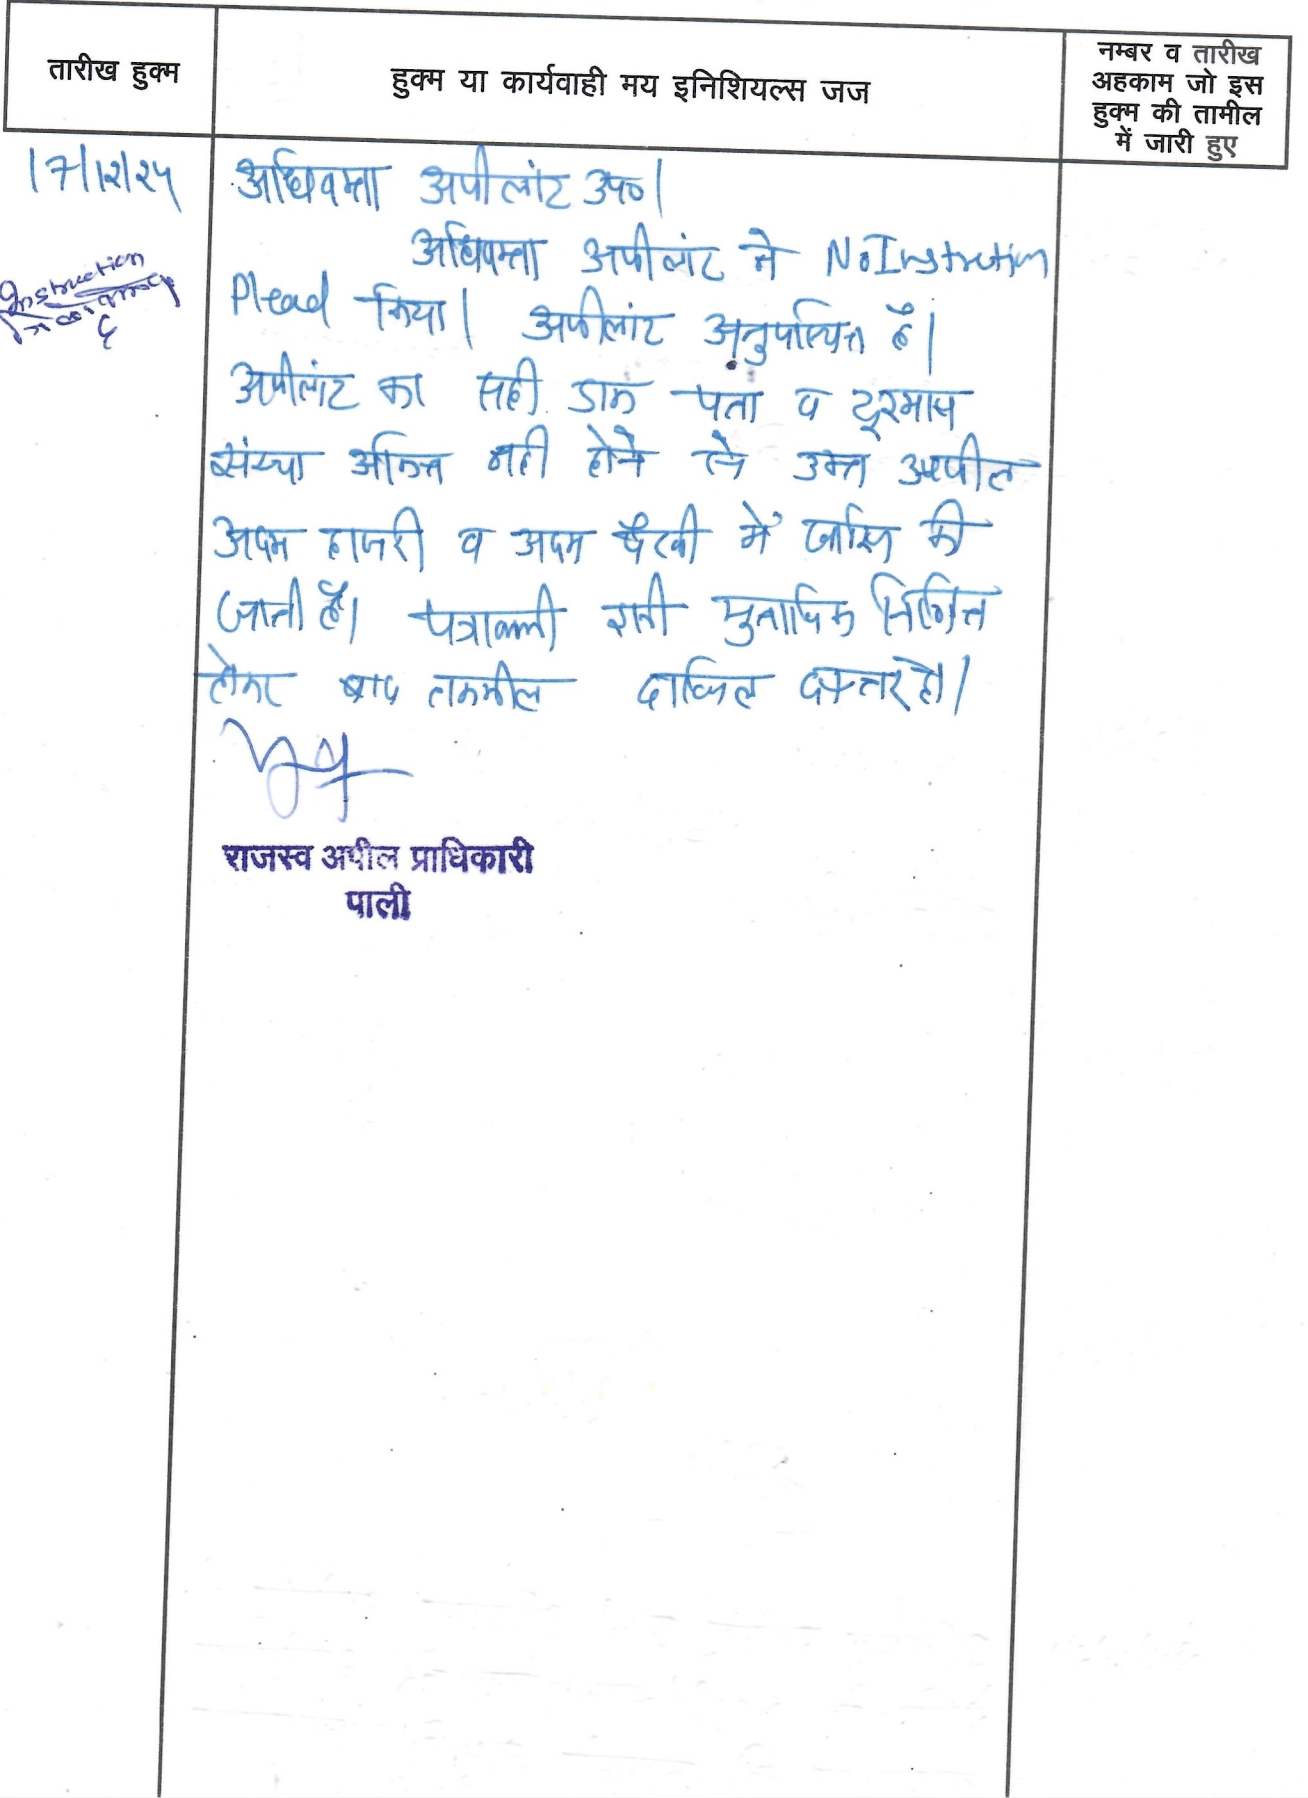 तारीख हुक्म
हुक्म या कार्यवाही मय इनिशियल्स जज
नम्बर व तारीख
अहकाम जो इस
हुक्म की तामील
में जारी हुए
17/12/24
अधिवक्ता अपीलांट उप०।
अधिवक्ता अपीलांट ने No Instruction
Plead किया। अपीलांट अनुपस्थित है।
अपीलांट का सही डाक पता व दूरभाष
संख्या अंकित नही होने से उक्त अपील
अदम हाजरी व अदम पैरवी में खारिज की
जाती है। पत्रावली इसी मुताबिक निर्णित
होकर बाद तकमील दाखिल दफ्तर हो।
Instruction
राजस्व अपील प्राधिकारी
पाली